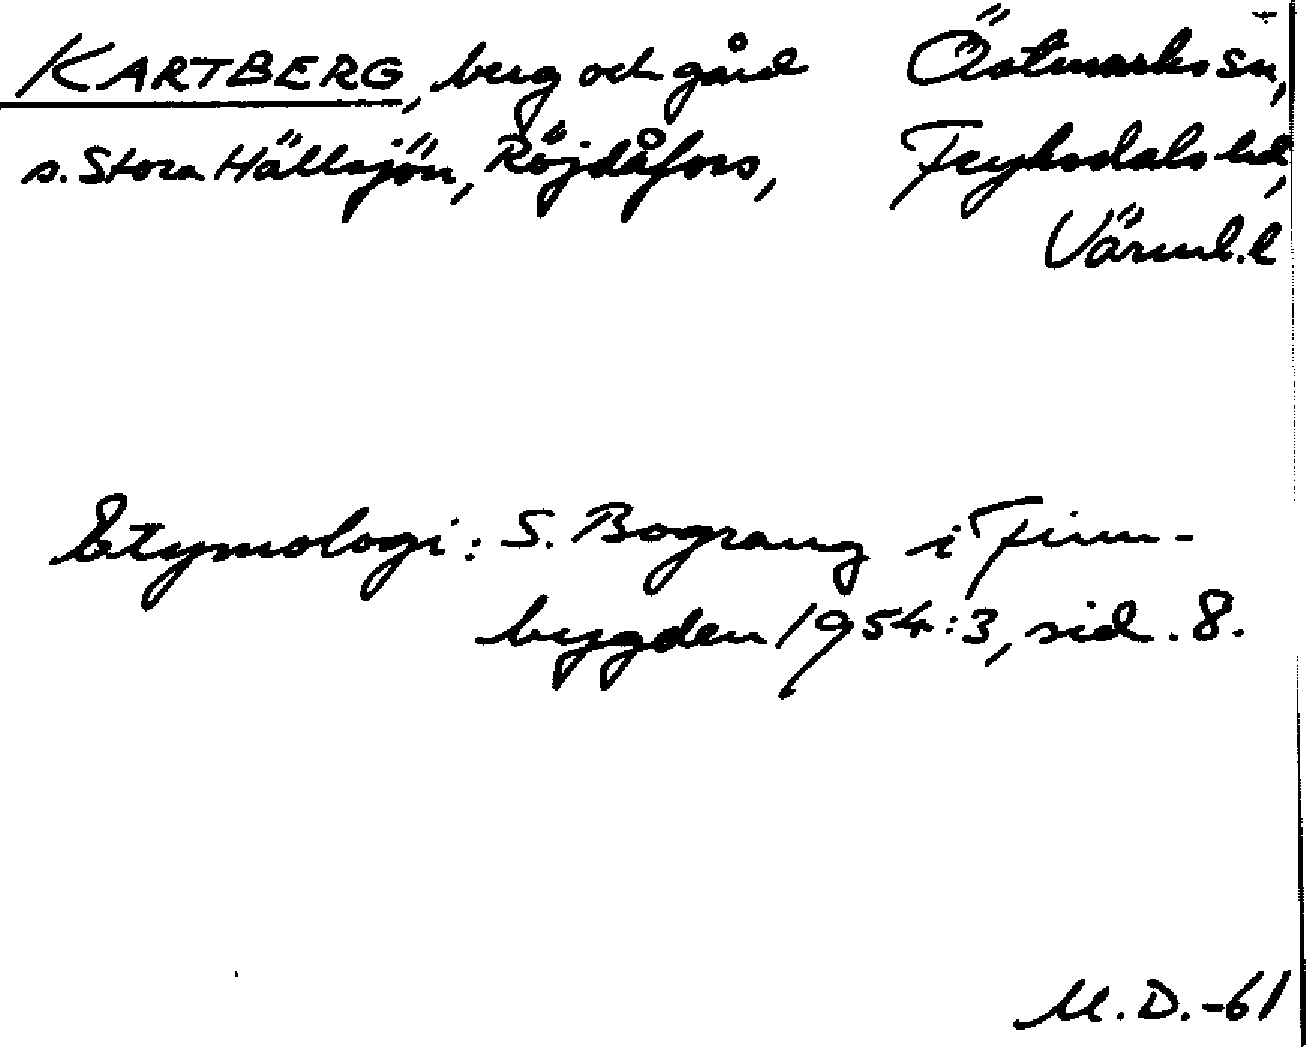 KARTBERG, berg och gård
s. Stora Hällsjön, Röjdåfors,
Östmarks sn,
Fryksdals hd,
Värml. l
Etymologi: S. Bograng i Finn-
bygden 1954:3, sid. 8.
M.D.-61